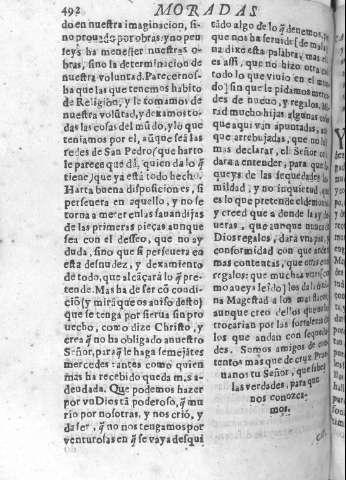 492 MORADAS
do en nuestra imaginacion, si-
no prouado por obras: y no pen
seys ha menester nuestras o-
bras, sino la determinacion de
nuestra voluntad. Parecernos-
ha que las que tenemos habito
de Religion, y le tomamos de
nuestra volũtad, y dexamos to-
das las cosas del mũdo, y lo que
teniamos por el, aũque seã las
redes de San Pedro, que harto
le parece que dà, quien da lo q̃
tiene, que ya està todo hecho.
Harta buena disposiciones, si
perseuera en aquello, y no se
torna a meter en las sauandijas
de las primeras pieças aunque
sea con el desseo, que no ay
duda, sino que si perseuera en
esta desnudez, y dexamiento
de todo, que alcãçarà lo q̃ pre-
tende. Mas ha de ser cõ condi-
ciõ (y mirà que os auiso desto)
que se tenga por sierua sin pro
uecho, como dize Christo, y
crea q̃ no ha obligado a nuestro
Señor, para q̃ le haga semejãtes
mercedes: antes como quien
mas ha recebido queda mas a-
deudada. Que podemos hazer
por vn Dios tã poderoso, q̃ mu
rio por nosotras, y nos criò, y
da ser, q̃ no nos tengamos por
venturosas en q̃ se vaya desqui
tãdo algo de lo q̃ denemos, por
que nos ha seruido [de mala
na dixe esta palabra, mas el
es assi, que no hizo otra
todo lo que viuio en el
do] sin que le pidamos
des de nueuo, y regalos.
rad mucho hijas algunas
que aqui van apuntadas,
que arrebujadas, que no
mas declarar, el Señor
darà a entender, para que
queys de las sequedades
mildad, y no inquietud,
es lo que pretende el demonio
y creed que a donde la ay de
ueras, que aunque nunca
Dios regalos, darà vna paz, y
conformidad con que anden
mas contentas, que otras con
regalos: que muchas vezes
mo aueys leido) los da la
na Magestad a los mas flacos,
aunque creo dellos que no
trocarian por las fortalezas de
los que andan con seque-
des. Somos amigos de con-
tentos mas que de cruz. Prue-
uanos tu Señor, que sabes
las verdades, para que
nos conozca-
mos.